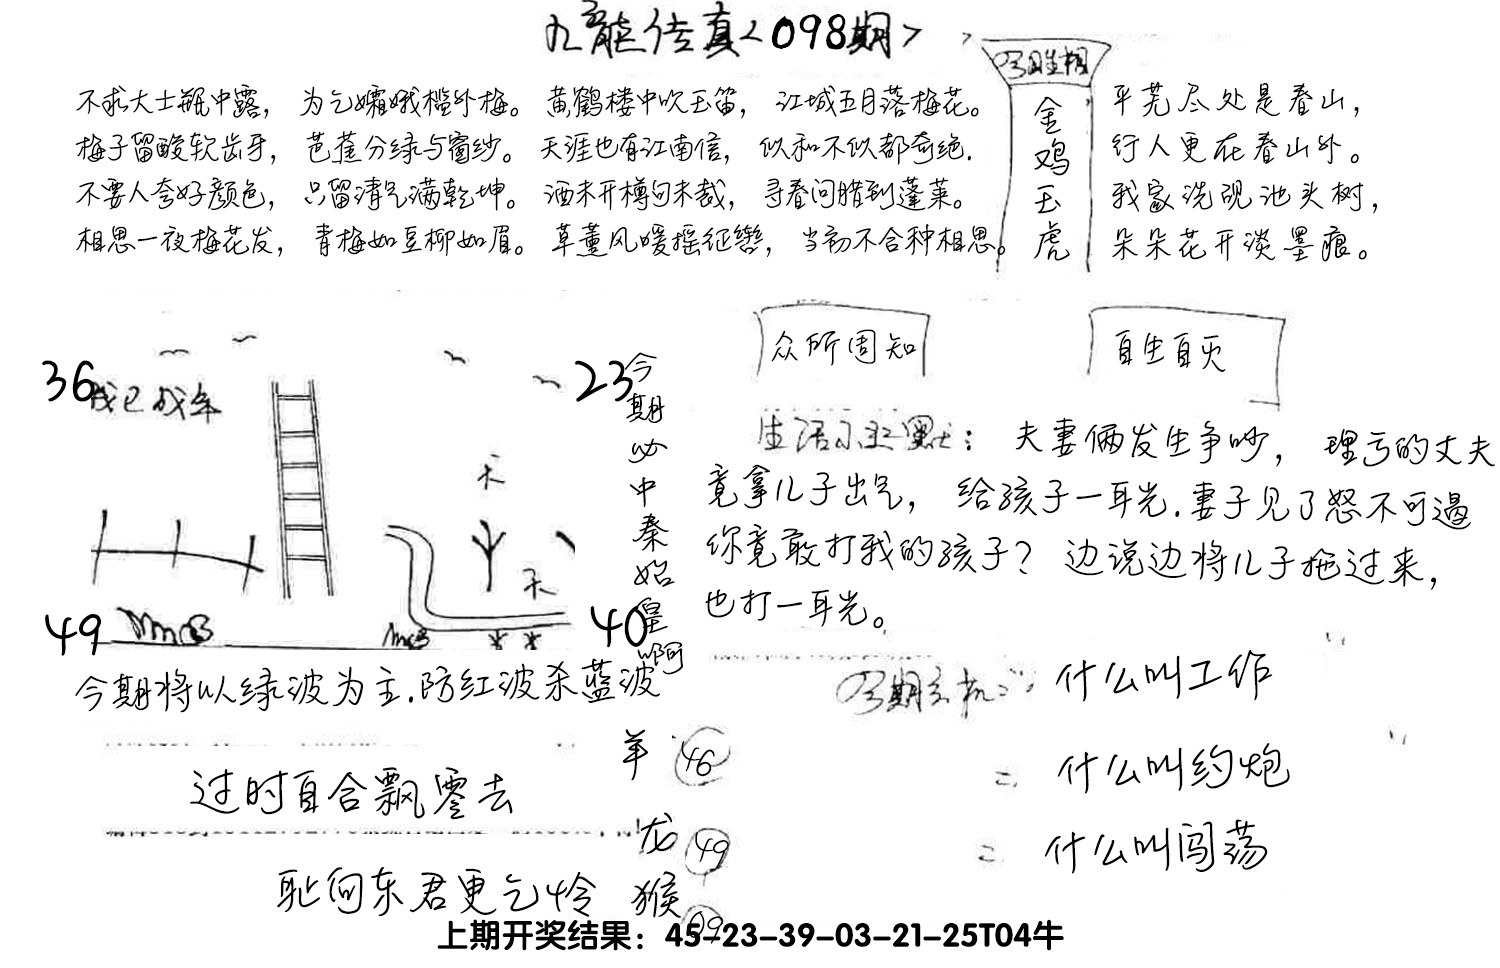 九龙传真<098期>
今日生相
金鸡玉虎
不求大士瓶中露，为乞孀娥槛外梅。黄鹤楼中吹玉笛，江城五月落梅花。
梅子留酸软齿牙，芭蕉分绿与窗纱。天涯也有江南信，似和不似都奇绝.
不要人夸好颜色，只留清气满乾坤。酒未开樽句未裁，寻春问腊到蓬莱。
相思一夜梅花发，青梅如豆柳如眉。草薰风暖摇征辔，当初不合种相思。
平芜尽处是春山，
行人更在春山外。
我家洗砚池头树，
朵朵花开淡墨痕。
众所周知
自生自灭
36
23
找已成年
天
天
49
40
今期必中秦始皇啊
生活小幽默：夫妻俩发生争吵，理亏的丈夫
竟拿儿子出气，给孩子一耳光.妻子见了怒不可遏
你竟敢打我的孩子？边说边将儿子拖过来，
也打一耳光。
今期将以绿波为主.防红波杀蓝波
今期玄机：什么叫工作
什么叫约炮
什么叫闯荡
羊 46
龙 49
猴 09
过时自合飘零去
耻向东君更乞怜
上期开奖结果：45-23-39-03-21-25T04牛